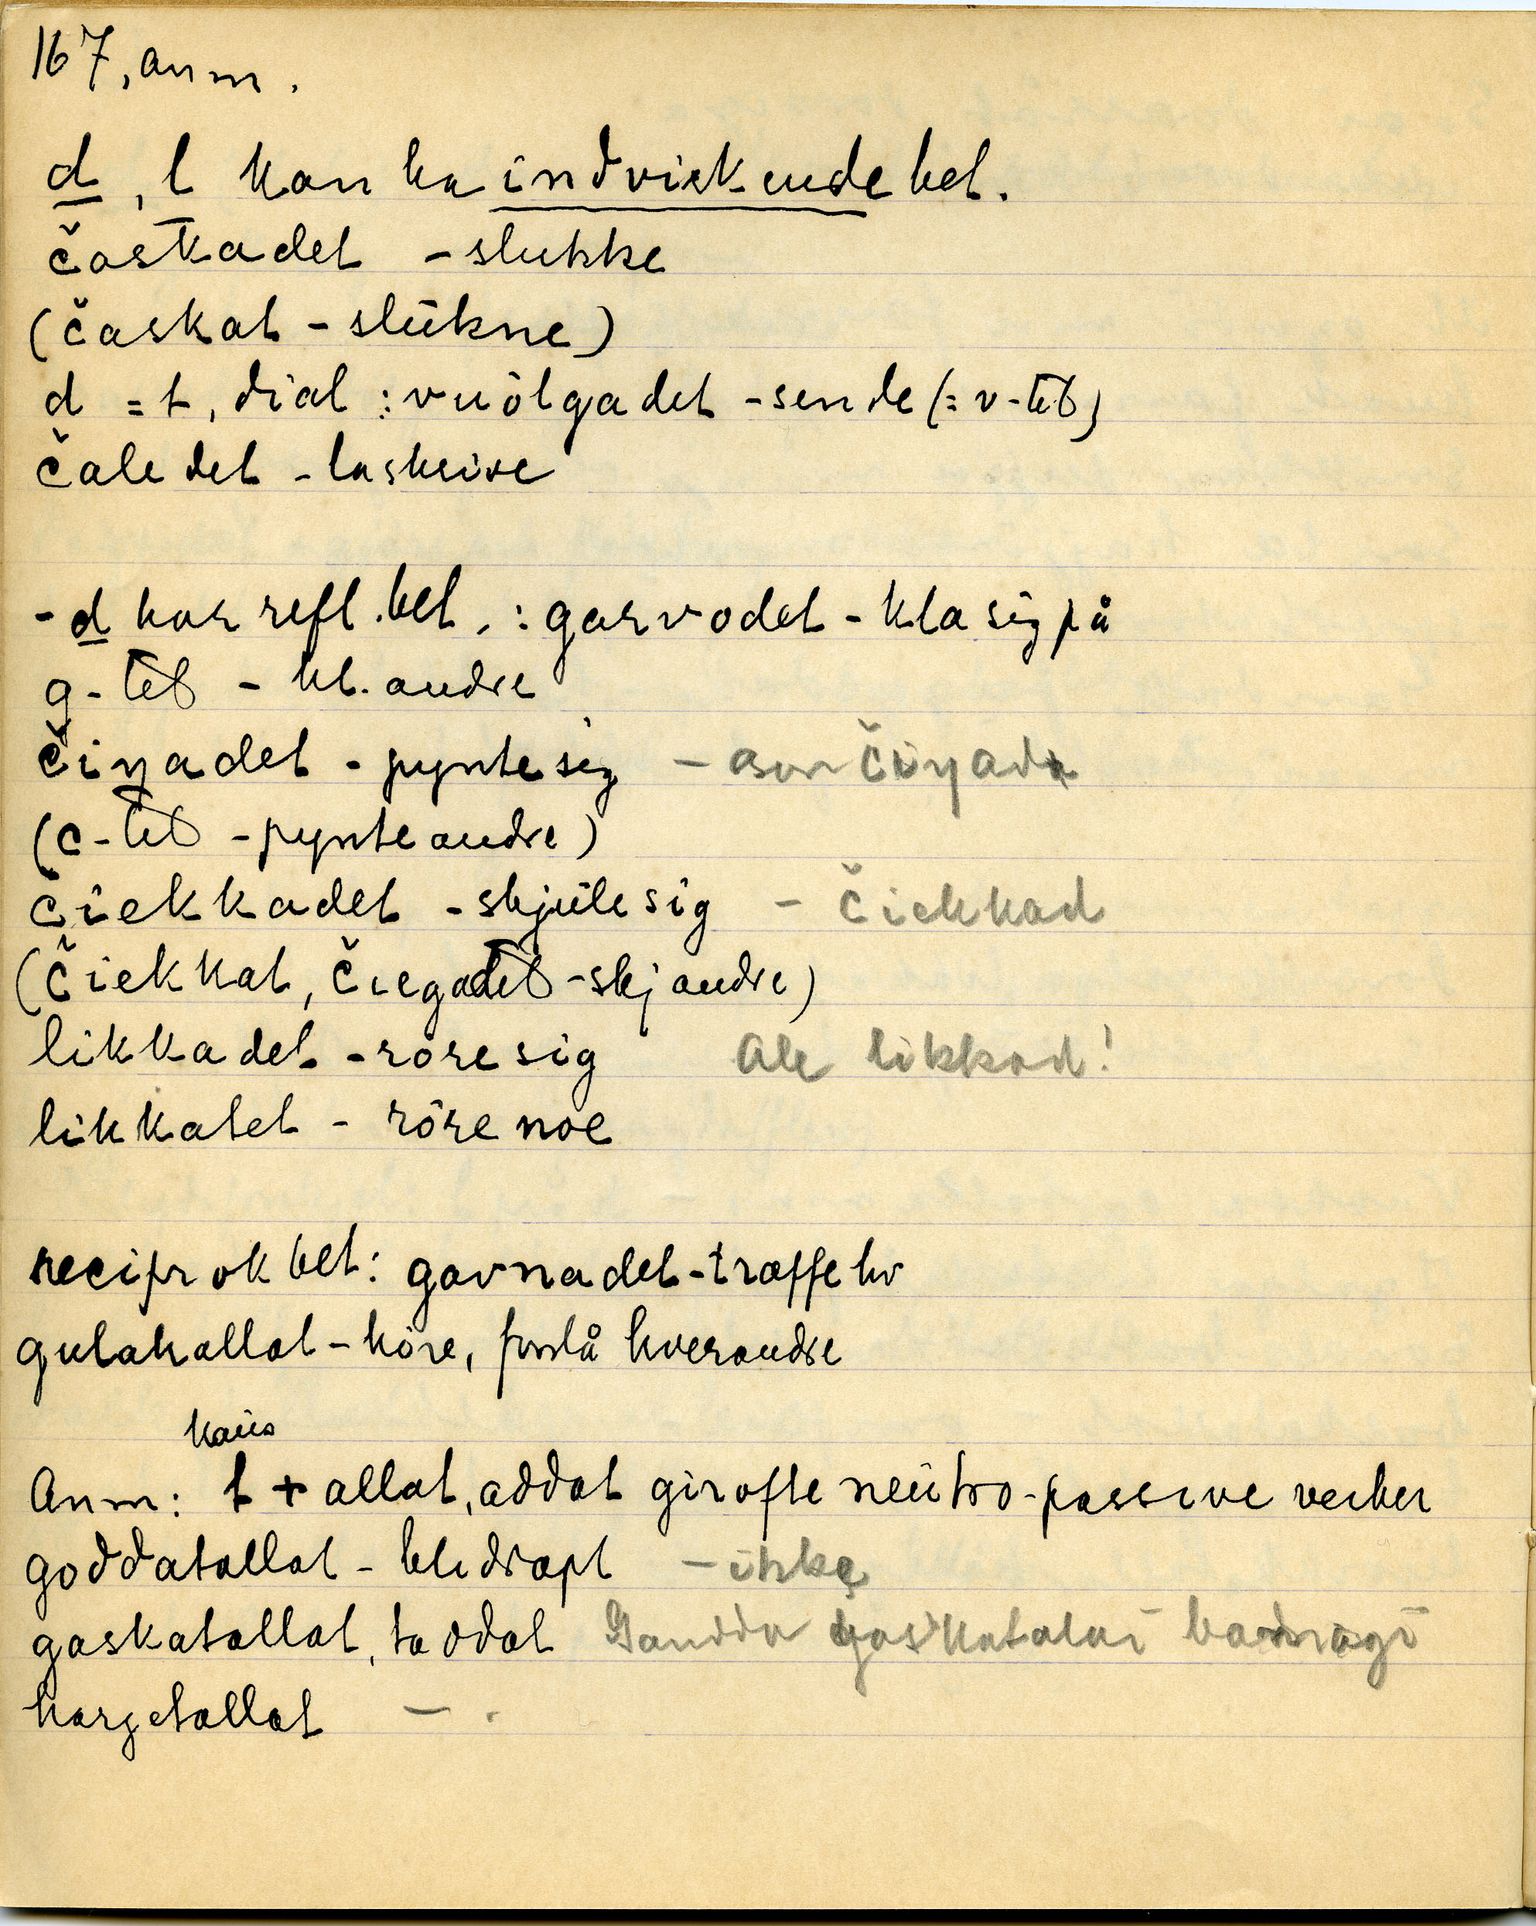 167, anm.
d, t kan ha indvirkende bet.
časkadet - slukke
(časkat - slukne)
d = t, dial: vuolgadet - sende (= v-tet)
čaledet - la skrive
-d har refl. bet.: garvodet - kla sig på
g-tet - kl. andre
čiŋadet - pynte sig - čiŋad
(c-tet - pynte andre)
čiekkadet - skjule sig - čiekkad
(čiekkat, čiegadet - skj andre)
likkadet - röre sig ale likkad!
likkatet - röre noe
reciprok bet: gavnadet - træffe hv
gulahallat - höre, forstå hverandre
kaus
Anm: t + allat, addat gir ofte neutro-passive verber
goddatallat - bli dræpt - ikke
gaskatallat, taddat gaskatalai
hargetallat -